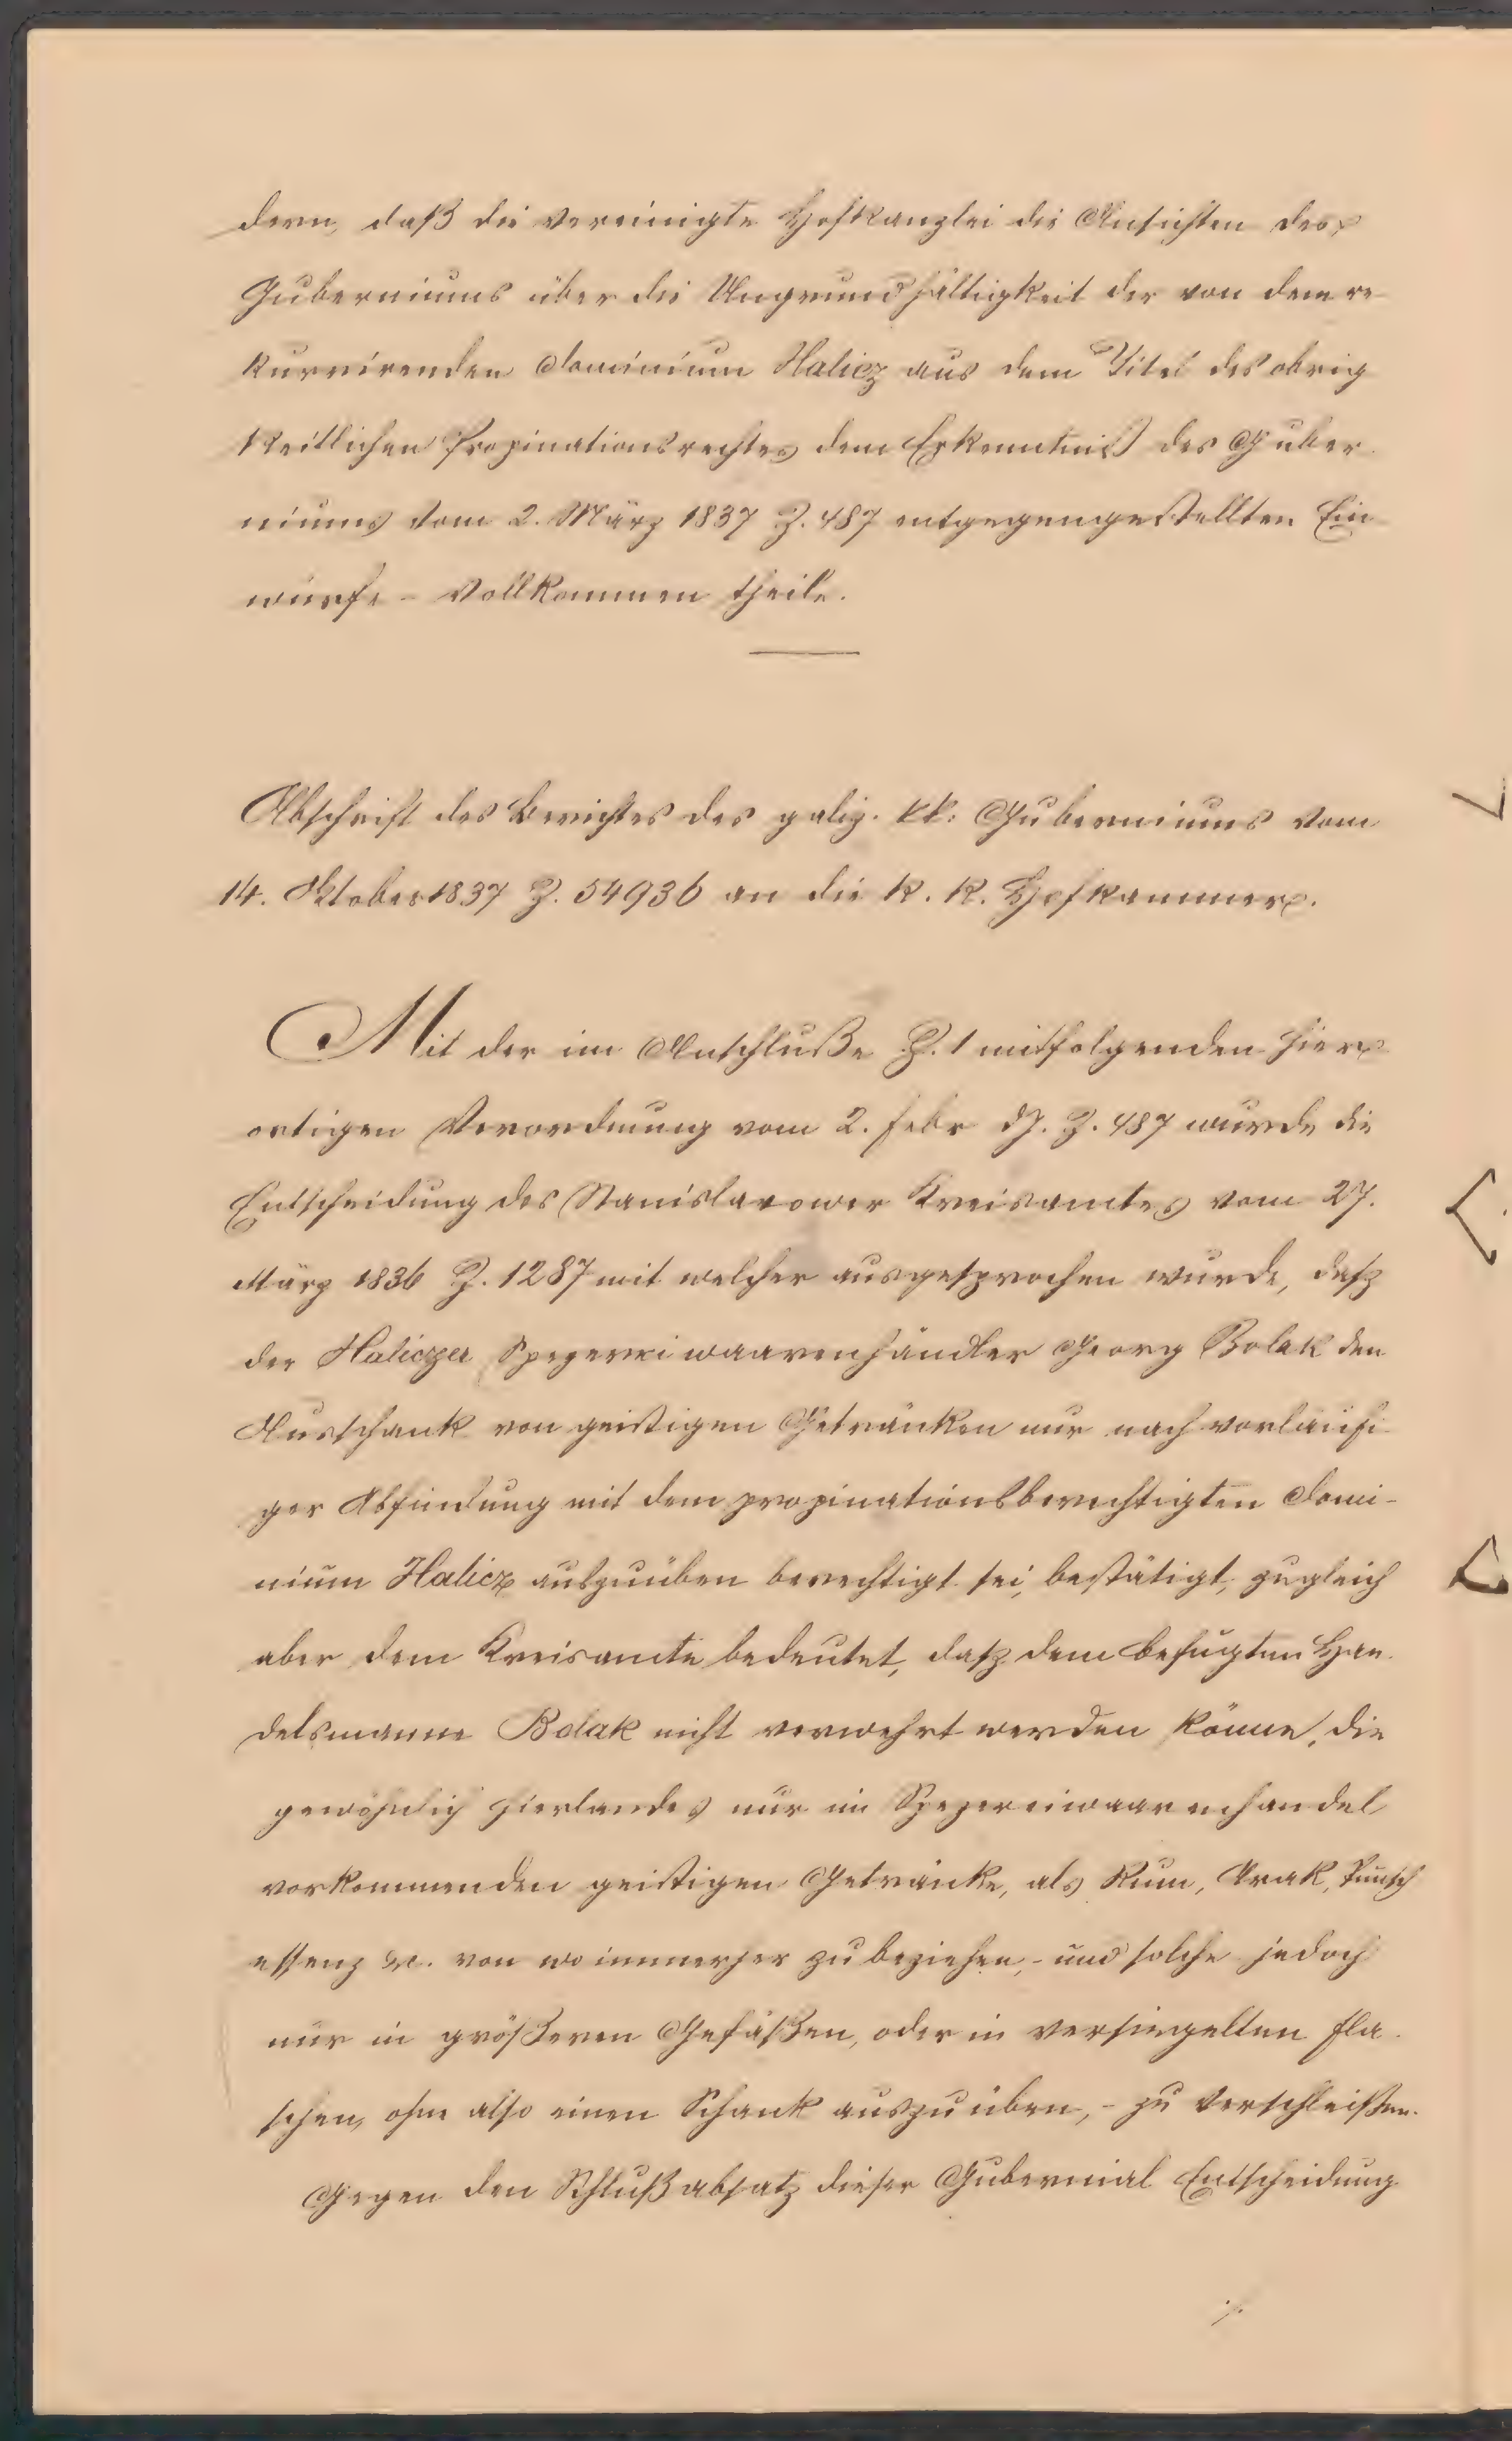 dern, daß die vereinigte Hofkanzlei die Ansichten des
Guberniums über die Ungrundhältigkeit der von dem re
kurrirenden Dominium Halicz aus dem Titel des obrig
keitlichen Propinationsrechtes dem Erkenntniß des Guber
niums vom 2. März 1837 Z. 487 entgegengestellten Ein
würfe - vollkommen theile.
Abschrift des Berichtes des galiz. kk: Guberniums vom
14. Oktober 1837 Z. 54936 an die k. k. Hofkammer.
Mit der im Anschluße Z. 1 mitfolgenden hier
ortigen Verordnung vom 2. Febr dJ. Z. 487 wurde die
Entscheidung des Stanislawower Kreisamtes vom 27.
März 1836 Z. 1287 mit welcher ausgesprochen wurde, daß
der Haliczer Spezereiwaarenhändler Georg Bolak den
Ausschank von geistigen Getränken nur nach vorläufi
ger Abfindung mit dem propinationsberechtigten Domi-
nium Halicz auszuüben berechtigt sei, bestätigt, zugleich
aber dem Kreisamte bedeutet, daß dem befugten Han
delsmanne Bolak nicht verwehrt werden könne, die
gewöhnlich hierlandes nur im Spezereiwaarenhandel
vorkommenden geistigen Getränke, als Rum, Arak, Punsch
essenz &c. von wo immer her zu beziehen, - und solche jedoch
nur in größeren Gefäßen, oder in versiegelten Fla
schen, ohne also einen Schank auszuüben, - zu verschleißen.
Gegen den Schlußabsatz dieser Gubernial Entscheidung
./.